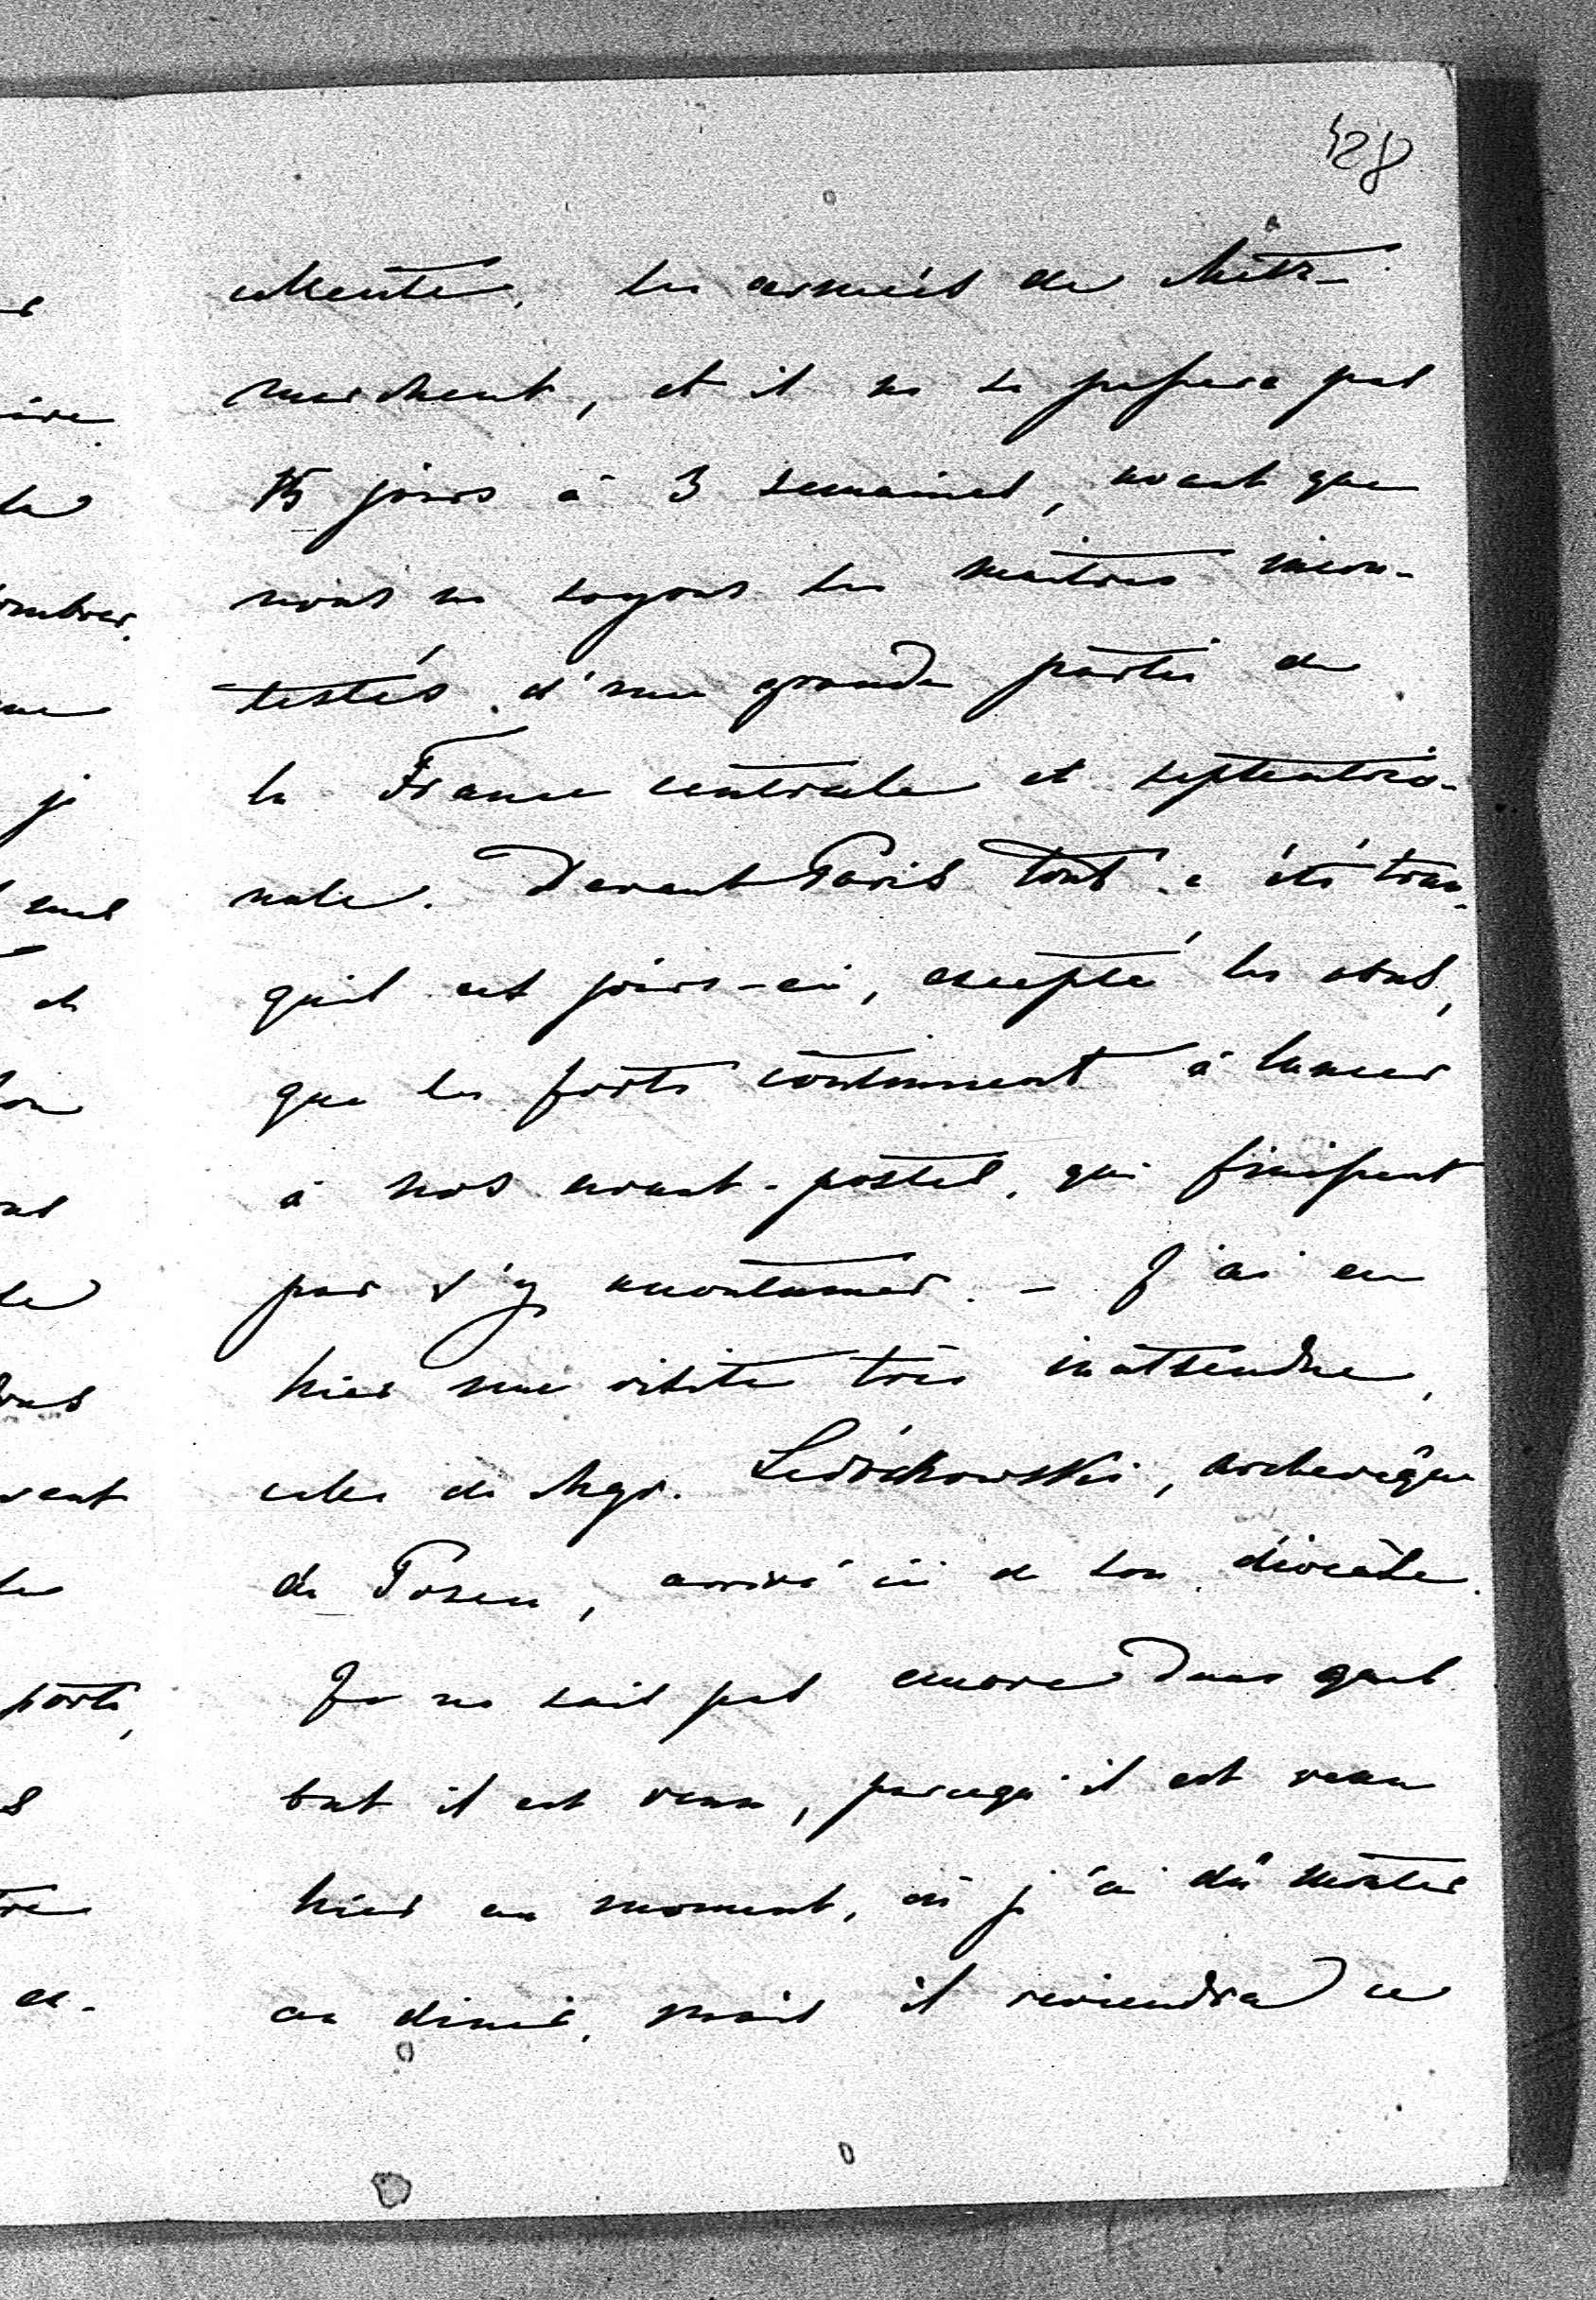 428
cellente. les armées de Metz
marchent, et il ne se passera pas
15 jours à 3 semaines, avant que
nous ne soyons les maîtres incon-
testés d'une grande partie de
la France centrale et septentrio-
nale. Devant Paris tout a été tran-
quil ces jours-ci, excepté les obus,
que les forts continuent à lancer
à nos avant-postes, qui finissent
par s'y accoutumer. - J'ai eu
hier une visite très inattendue,
celle de Mgr. Ledóchowski, archevêque
de Posen, arrivé ici de son diocèse.
Je ne sais pas encore dans quel
but il est venu, parcequ'il est venu
hier au moment, où j'ai dû monter
au diner, mais il reviendra ce